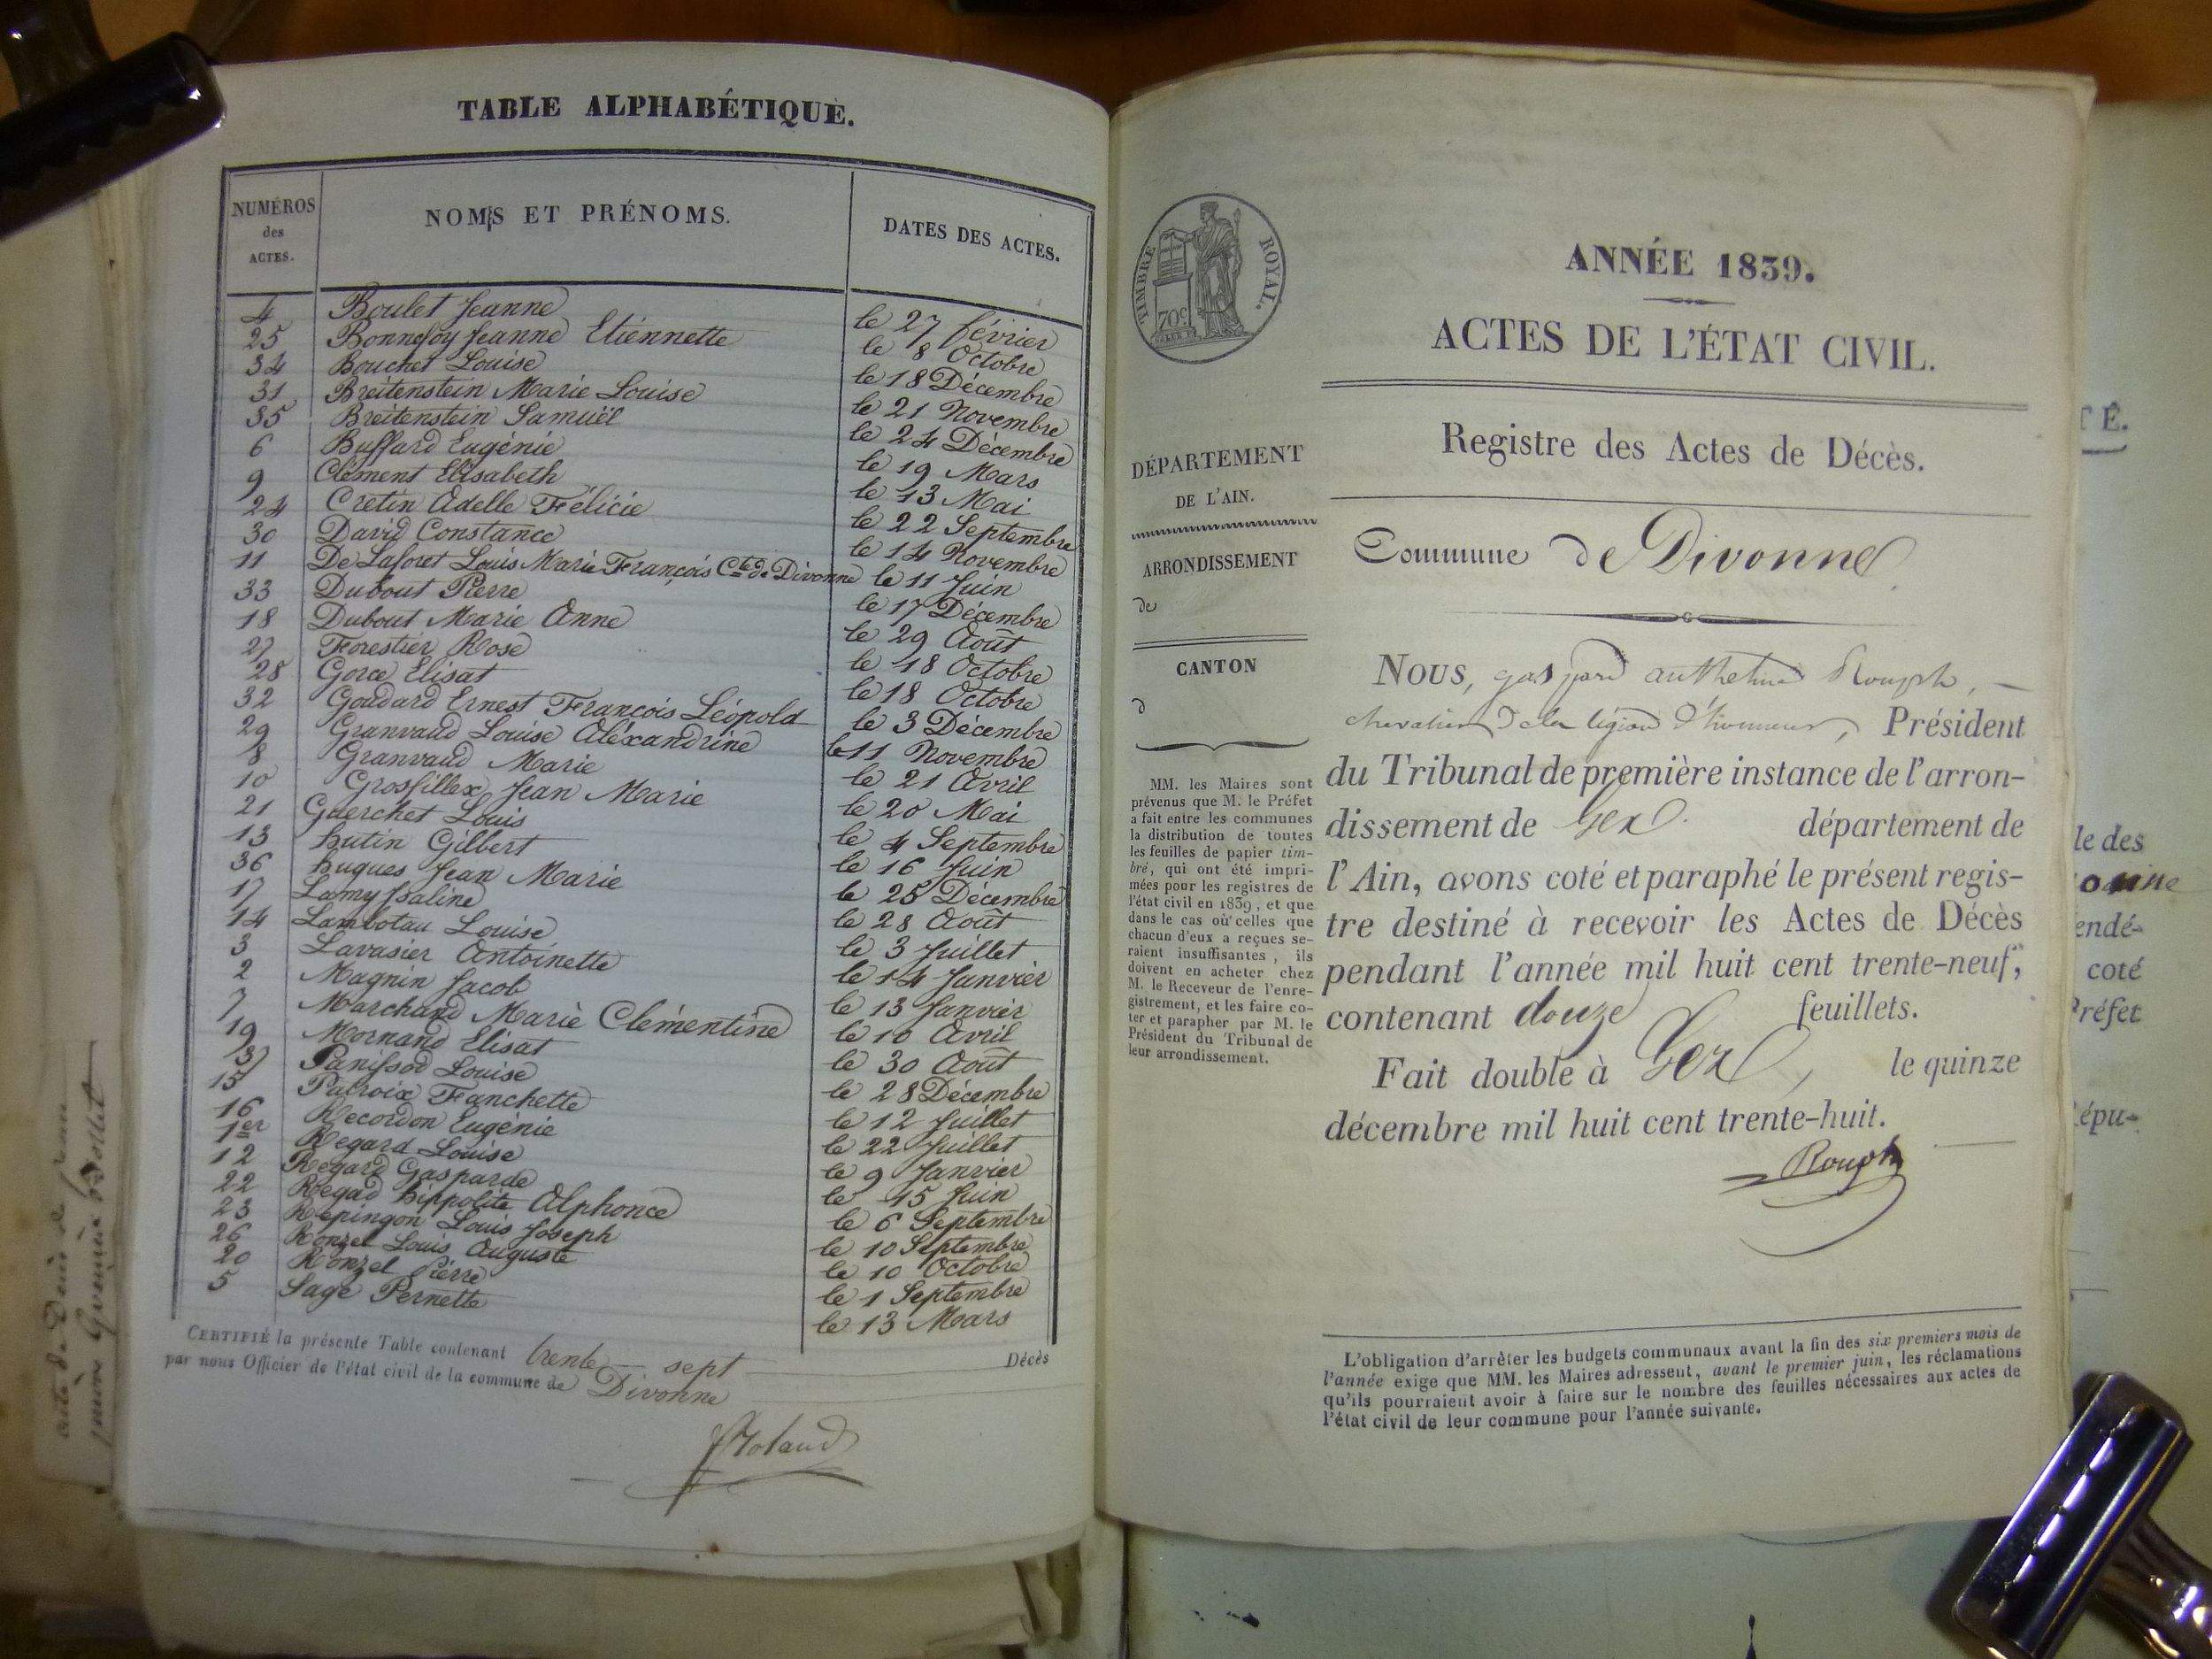 TABLE ALPHABÉTIQUE.
NUMÉROS des ACTES. NOMS ET PRÉNOMS. DATES DES ACTES.
4 Boulet Jeanne le 27 février
25 Bonnefoy Jeanne Etiennette le 8 Octobre
34 Bouchet Louise le 18 Décembre
31 Breitenstein Marie Louise le 21 Novembre
35 Breitenstein Samuël le 24 Décembre
6 Buffard Eugénie le 19 Mars
9 Clément Elisabeth le 13 Mai
24 Cretin Adelle Félicie le 22 Septembre
30 David Constance le 14 Novembre
11 De Laforet Louis Marie François Cte de Divonne le 11 Juin
33 Dubout Pierre le 17 Décembre
18 Dubout Marie Anne le 29 Août
27 Forestier Rose le 18 Octobre
28 Gorce Elisat le 18 Octobre
32 Goudard Ernest François Léopold le 3 Décembre
29 Granvaud Louise Aléxandrine le 11 Novembre
8 Granvaud Marie le 21 Avril
10 Grosfillex Jean Marie le 20 Mai
21 Guerchet Louis le 4 Septembre
13 hutin Gilbert le 16 Juin
36 hugues Jean Marie le 25 Décembre
17 Lamy Isaline le 28 Août
14 Lambotau Louise le 3 Juillet
3 Lavasier Antoinette le 14 Janvier
2 Magnin Jacob le 13 Janvier
7 Marchand Marie Clémentine le 10 Avril
19 Mornand Elisat le 30 Août
37 Panissod Louise le 28 Décembre
15 Patroix Fanchette le 12 Juillet
16 Recordon Eugénie le 22 Juillet
1er Regard Louise le 9 Janvier
12 Regard Gasparde le 15 Juin
22 Regad hippolite Alphonce le 6 Septembre
23 Repingon Louis Joseph le 10 Septembre
26 Ronzel Louis Auguste le 10 Octobre
20 Ronzel Pierre le 1 Septembre
5 Sage Pernette le 13 Mars
CERTIFIÉ la présente Table contenant trente sept Décès
par nous Officier de l'état civil de la commune de Divonne
TIMBRE ROYAL.
70c
ANNÉE 1839.
ACTES DE L'ÉTAT CIVIL.
DÉPARTEMENT
DE L'AIN.
ARRONDISSEMENT
de
CANTON
d
MM. les Maires sont
prévenus que M. le Préfet
a fait entre les communes
la distribution de toutes
les feuilles de papier tim-
bré, qui ont été impri-
mées pour les registres de
l'état civil en 1839, et que
dans le cas où celles que
chacun d'eux a reçues se-
raient insuffisantes, ils
doivent en acheter chez
M. le Receveur de l'enre-
gistrement, et les faire co-
ter et parapher par M. le
Président du Tribunal de
leur arrondissement.
Registre des Actes de Décès.
Commune de Divonne
NOUS, gaspard anthelme Rouph,
chevalier de la légion d'honneur, Président
du Tribunal de première instance de l'arron-
dissement de Gex. département de
l'Ain, avons coté et paraphé le présent regis-
tre destiné à recevoir les Actes de Décès
pendant l'année mil huit cent trente-neuf,
contenant douze feuillets.
Fait double à Gex, le quinze
décembre mil huit cent trente-huit.
Rouph
L'obligation d'arrêter les budgets communaux avant la fin des six premiers mois de
l'année exige que MM. les Maires adressent, avant le premier juin, les réclamations
qu'ils pourraient avoir à faire sur le nombre des feuilles nécessaires aux actes de
l'état civil de leur commune pour l'année suivante.
TÉ.
le des
endé-
coté
Préfet
Répu-